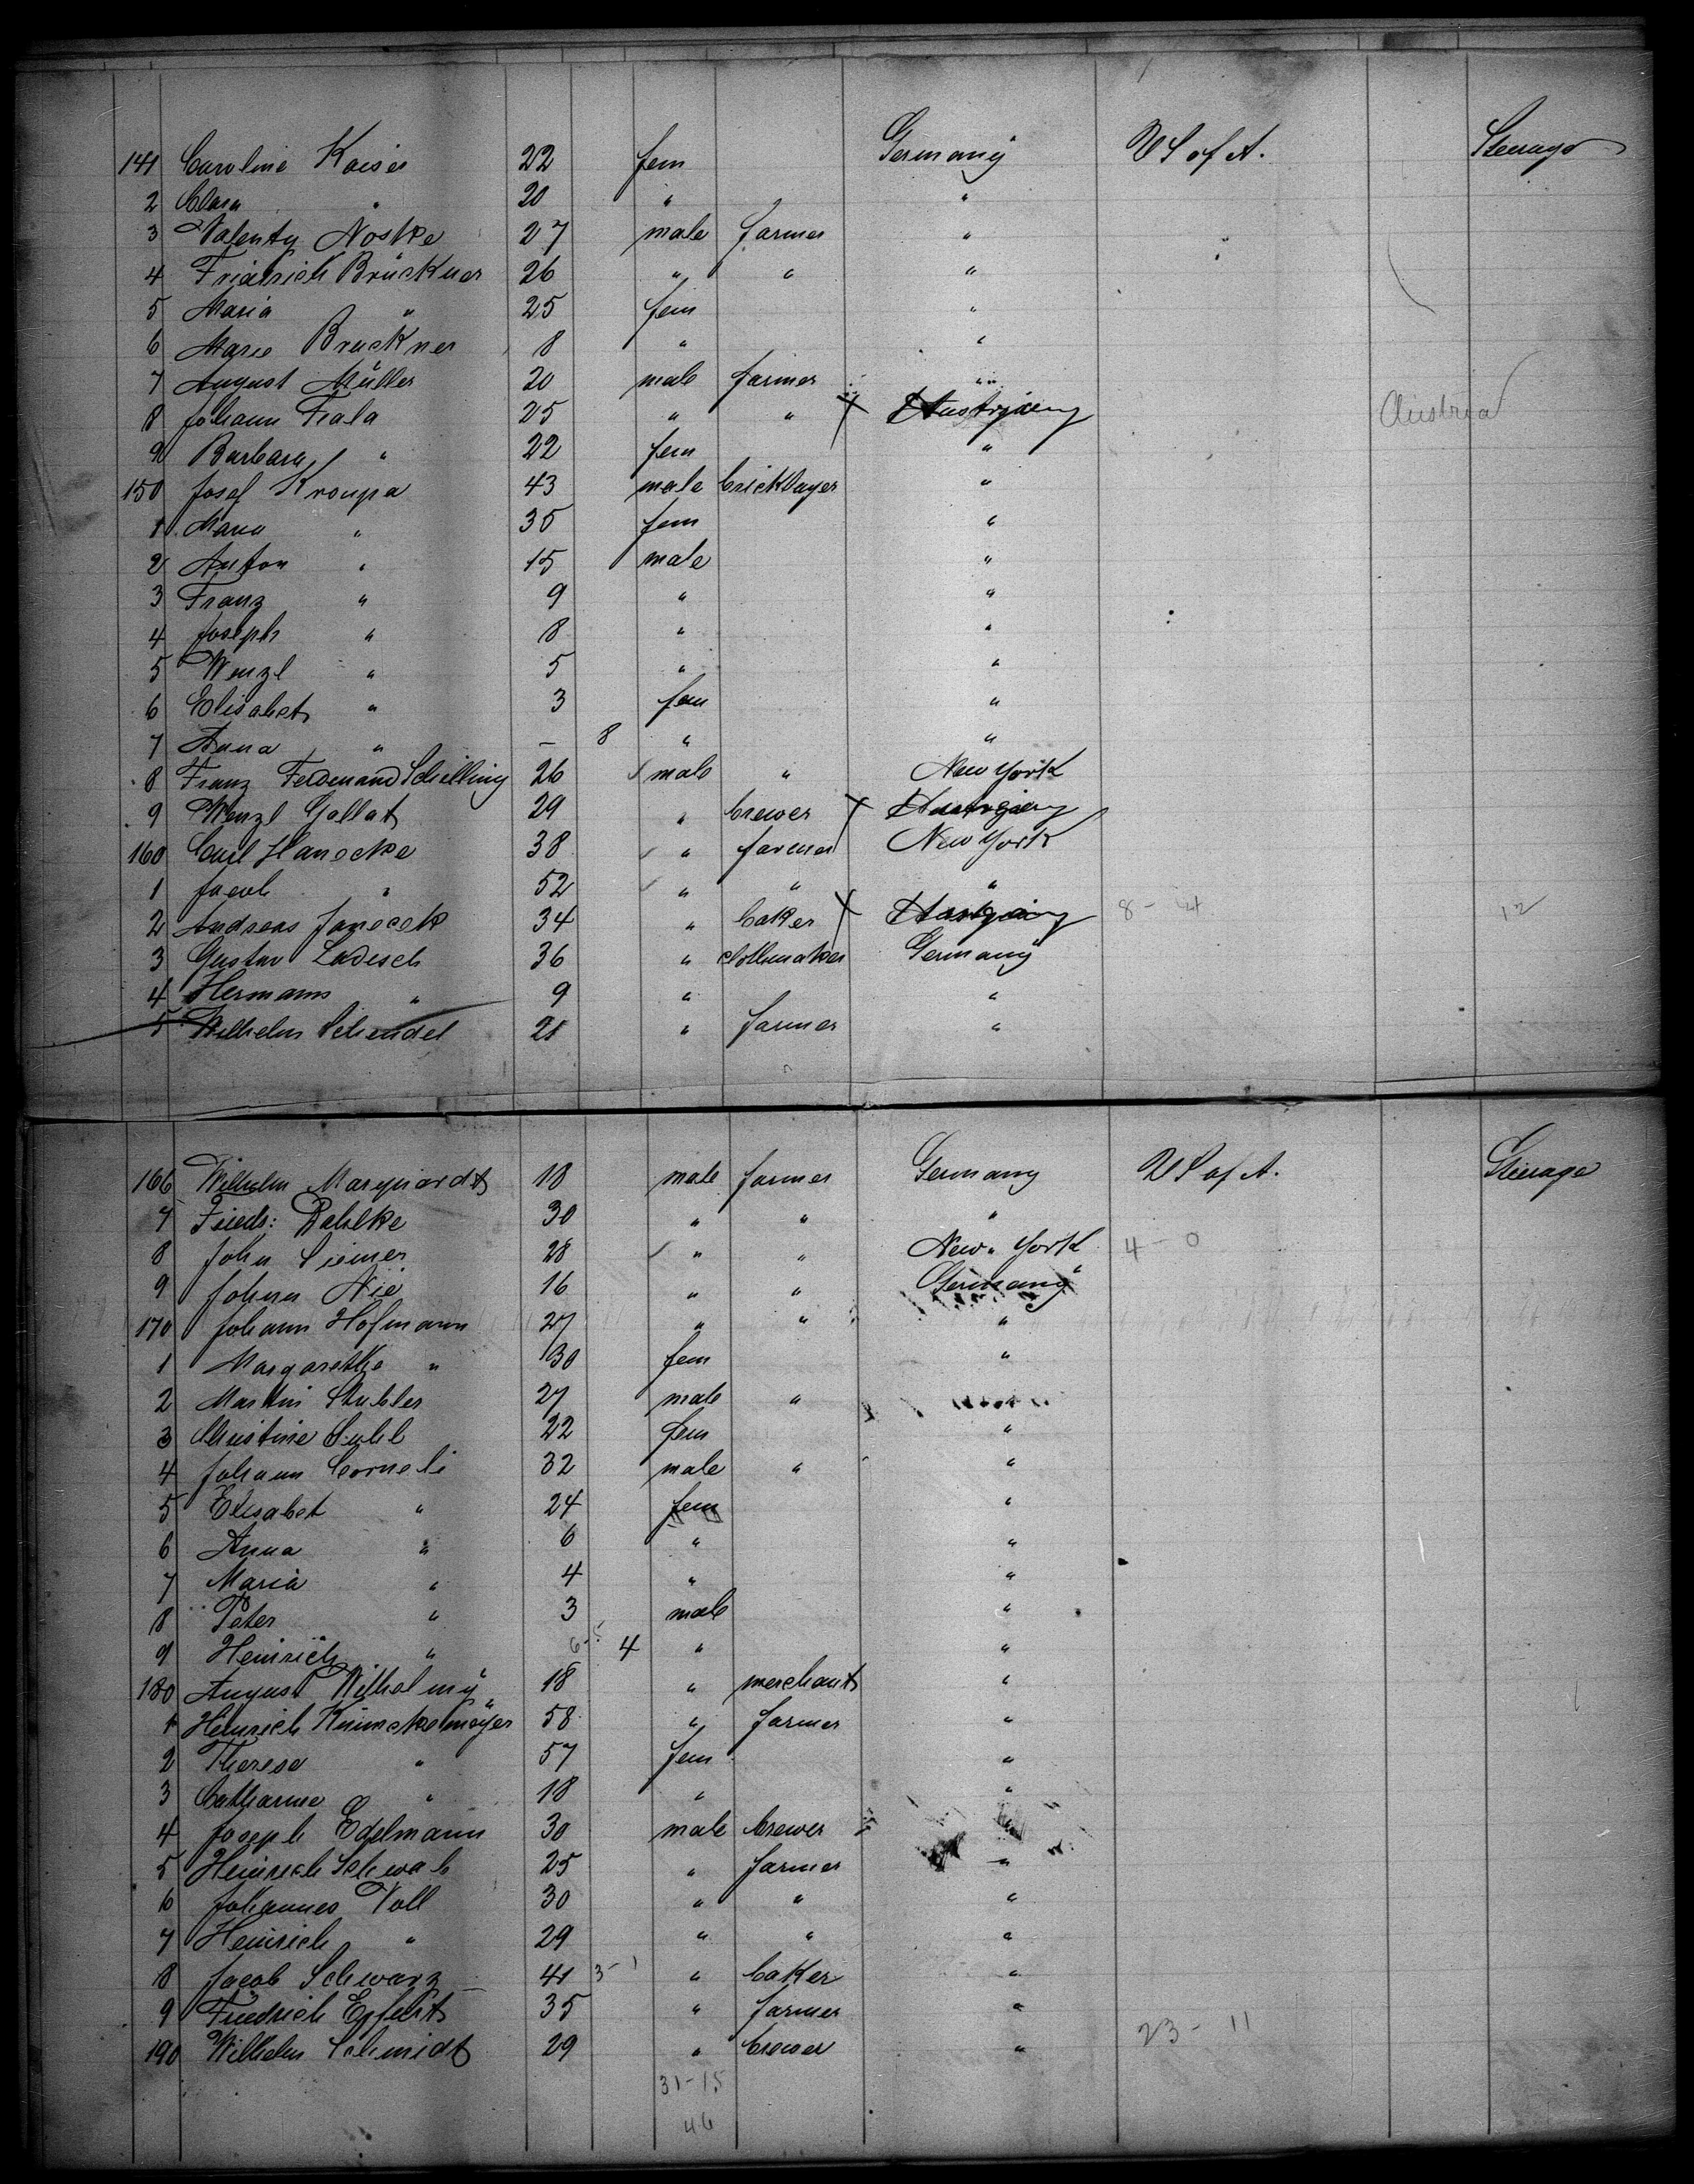 141 Caroline Kaiser 22 fem Germany U S of A. Steerage
2 Clara " 20 " "
3 Valenty Noske 27 male farmer "
4 Friedrich Brückner 26 " " "
5 Maria " 25 fem "
6 Marie Bruckner 8 " "
7 August Müller 20 male farmer "
8 Johann Fiala 25 " " X Austria Austria
9 Barbara " 22 fem "
150 Josef Kroupa 43 male bricklayer "
1 Maria " 35 fem "
2 Anton " 15 male "
3 Franz " 9 " "
4 Joseph " 8 " "
5 Wenzl " 5 " "
6 Elisabet " 3 fem "
7 Anna " - 8 " "
8 Franz Ferdenand Schilling 26 male " New York
9 Wenzl Gallat 29 " brewer X Austria
160 Carl Hanecke 38 " farmer New York
1 Jacob " 52 " " "
2 Andreas Janecek 34 " baker X 8 - 4 12
3 Gustav Ladisch 36 " Germany
4 Hermann " 9 " "
5 Wilhelm Schendel 21 " farmer "
166 Wilhelm Marquardt 18 male farmer Germany U S of A. Steerage
7 Friedr: Dahlke 30 " " "
8 John Siemer 28 " " New York 4 - 0
9 Johann Nie 16 " " Germany
170 Johann Hofmann 27 " " "
1 Margarethe " 30 fem "
2 Martin Stubler 27 male " "
3 Christine 22 fem "
4 Johann Corneli 32 male " "
5 Elisabet " 24 fem "
6 Anna " 6 " "
7 Maria " 4 " "
8 Peter " 3 male "
9 Heinrich " 4 " "
180 August Wilhelmy 18 " merchant "
1 Heinrich 58 " farmer "
2 Therese " 57 fem "
3 Catharine " 18 " "
4 Joseph Edelmann 30 male brewer "
5 Heinrich Schwab 25 " farmer "
6 Johannes Voll 30 " " "
7 Heinrich " 29 " " "
8 Jacob Schwarz 41 3 - 1 " baker "
9 Friedrich 35 " farmer "
190 Wilhelm Schmidt 29 " brewer " 23 - 11
31 - 15
46